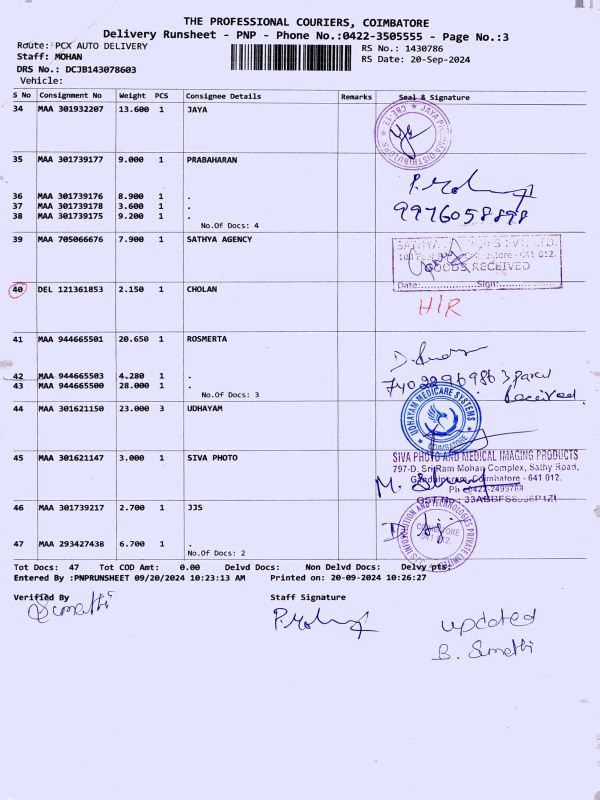 THE PROFESSIONAL COURIERS, COIMBATORE
Delivery Runsheet - PNP - Phone No.:0422-3505555 - Page No.:3
Route: PCX AUTO DELIVERY
RS No.: 1430786
Staff: MOHAN
RS Date: 20-Sep-2024
DRS No.: DCJB143078603
Vehicle:
S No Consignment No Weight PCS Consignee Details Remarks Seal & Signature
34 MAA 301932207 13.600 1 JAYA
35 MAA 301739177 9.000 1 PRABAHARAN
36 MAA 301739176 8.900 1 .
37 MAA 301739178 3.600 1 .
38 MAA 301739175 9.200 1 .
9976058898
No.Of Docs: 4
39 MAA 705066676 7.900 1 SATHYA AGENCY
GOODS RECEIVED
Date:.................Sign:.................
40 DEL 121361853 2.150 1 CHOLAN
HIR
41 MAA 944665501 20.650 1 ROSMERTA
42 MAA 944665503 4.280 1 .
43 MAA 944665500 28.000 1 .
3 parcel
received.
No.Of Docs: 3
44 MAA 301621150 23.000 3 UDHAYAM
UDHAYAN MEDICARE SYSTEMS
COIMBATORE
45 MAA 301621147 3.000 1 SIVA PHOTO
SIVA PHOTO AND MEDICAL IMAGING PRODUCTS
797-D, Sri Ram Mohan Complex, Sathy Road,
Gandhipuram, Coimbatore - 641 012.
Ph :0422-2499768
46 MAA 301739217 2.700 1 JJS
47 MAA 293427438 6.700 1 .
No.Of Docs: 2
Tot Docs: 47 Tot COD Amt: 0.00 Delvd Docs: Non Delvd Docs: Delvy pts:
Entered By :PNPRUNSHEET 09/20/2024 10:23:13 AM Printed on: 20-09-2024 10:26:27
Verified By
Staff Signature
Sumathi
updated
B. Sumathi